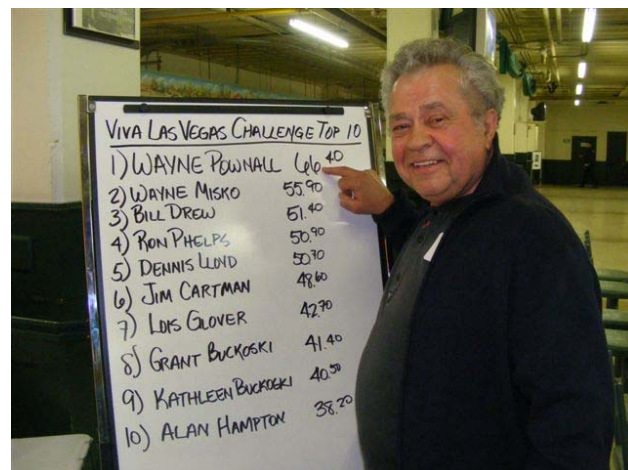 VIVA LAS VEGAS CHALLENGE TOP 10
1) WAYNE POWNALL 66.40
2) WAYNE MISKO 55.90
3) BILL DREW 51.40
4) RON PHELPS 50.90
5) DENNIS LLOYD 50.70
6) JIM CARTMAN 48.60
7) LOIS GLOVER 42.70
8) GRANT BUCKOSKI 41.40
9) KATHLEEN BUCKOSKI 40.50
10) ALAN HAMPTON 38.20